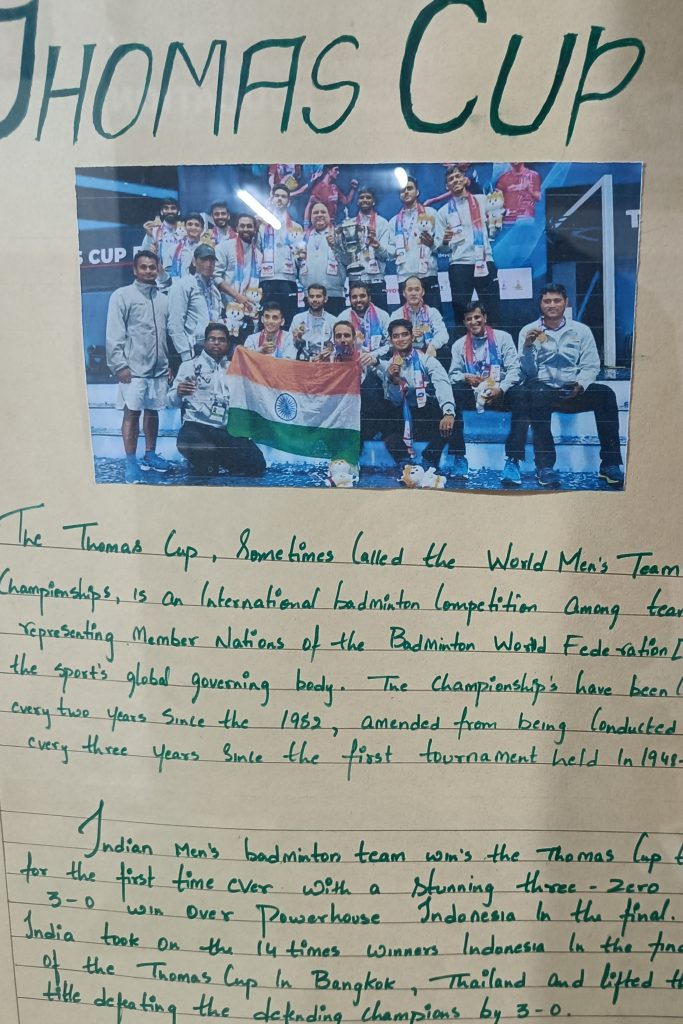 THOMAS CUP
CUP
The Thomas Cup, Sometimes Called the World Men's Team
Championships, is an International badminton Competition among tea
representing Member Nations of the Badminton World Federation
the sport's global governing body. The Championship's have been
every two years Since the 1982, amended from being Conducted
every three years Since the first tournament held In 1948-
Indian Men's badminton team win's the Thomas Cup
for the first time ever with a Stunning three-Zero
3-0 win over Powerhouse Indonesia In the final.
India took on the 14 times winners Indonesia In the fina
of the Thomas Cup In Bangkok, Thailand and lifted th
title defeating the defending champions by 3-0.